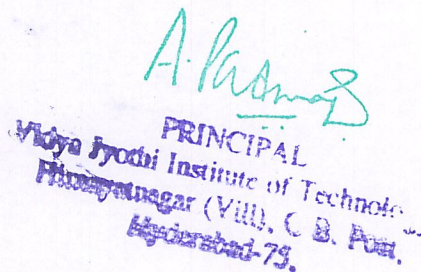 A. Padmaja
PRINCIPAL
Vidya Jyothi Institute of Technolo
Himayatnagar (Vill), C. B. Post,
Hyderabad-75.